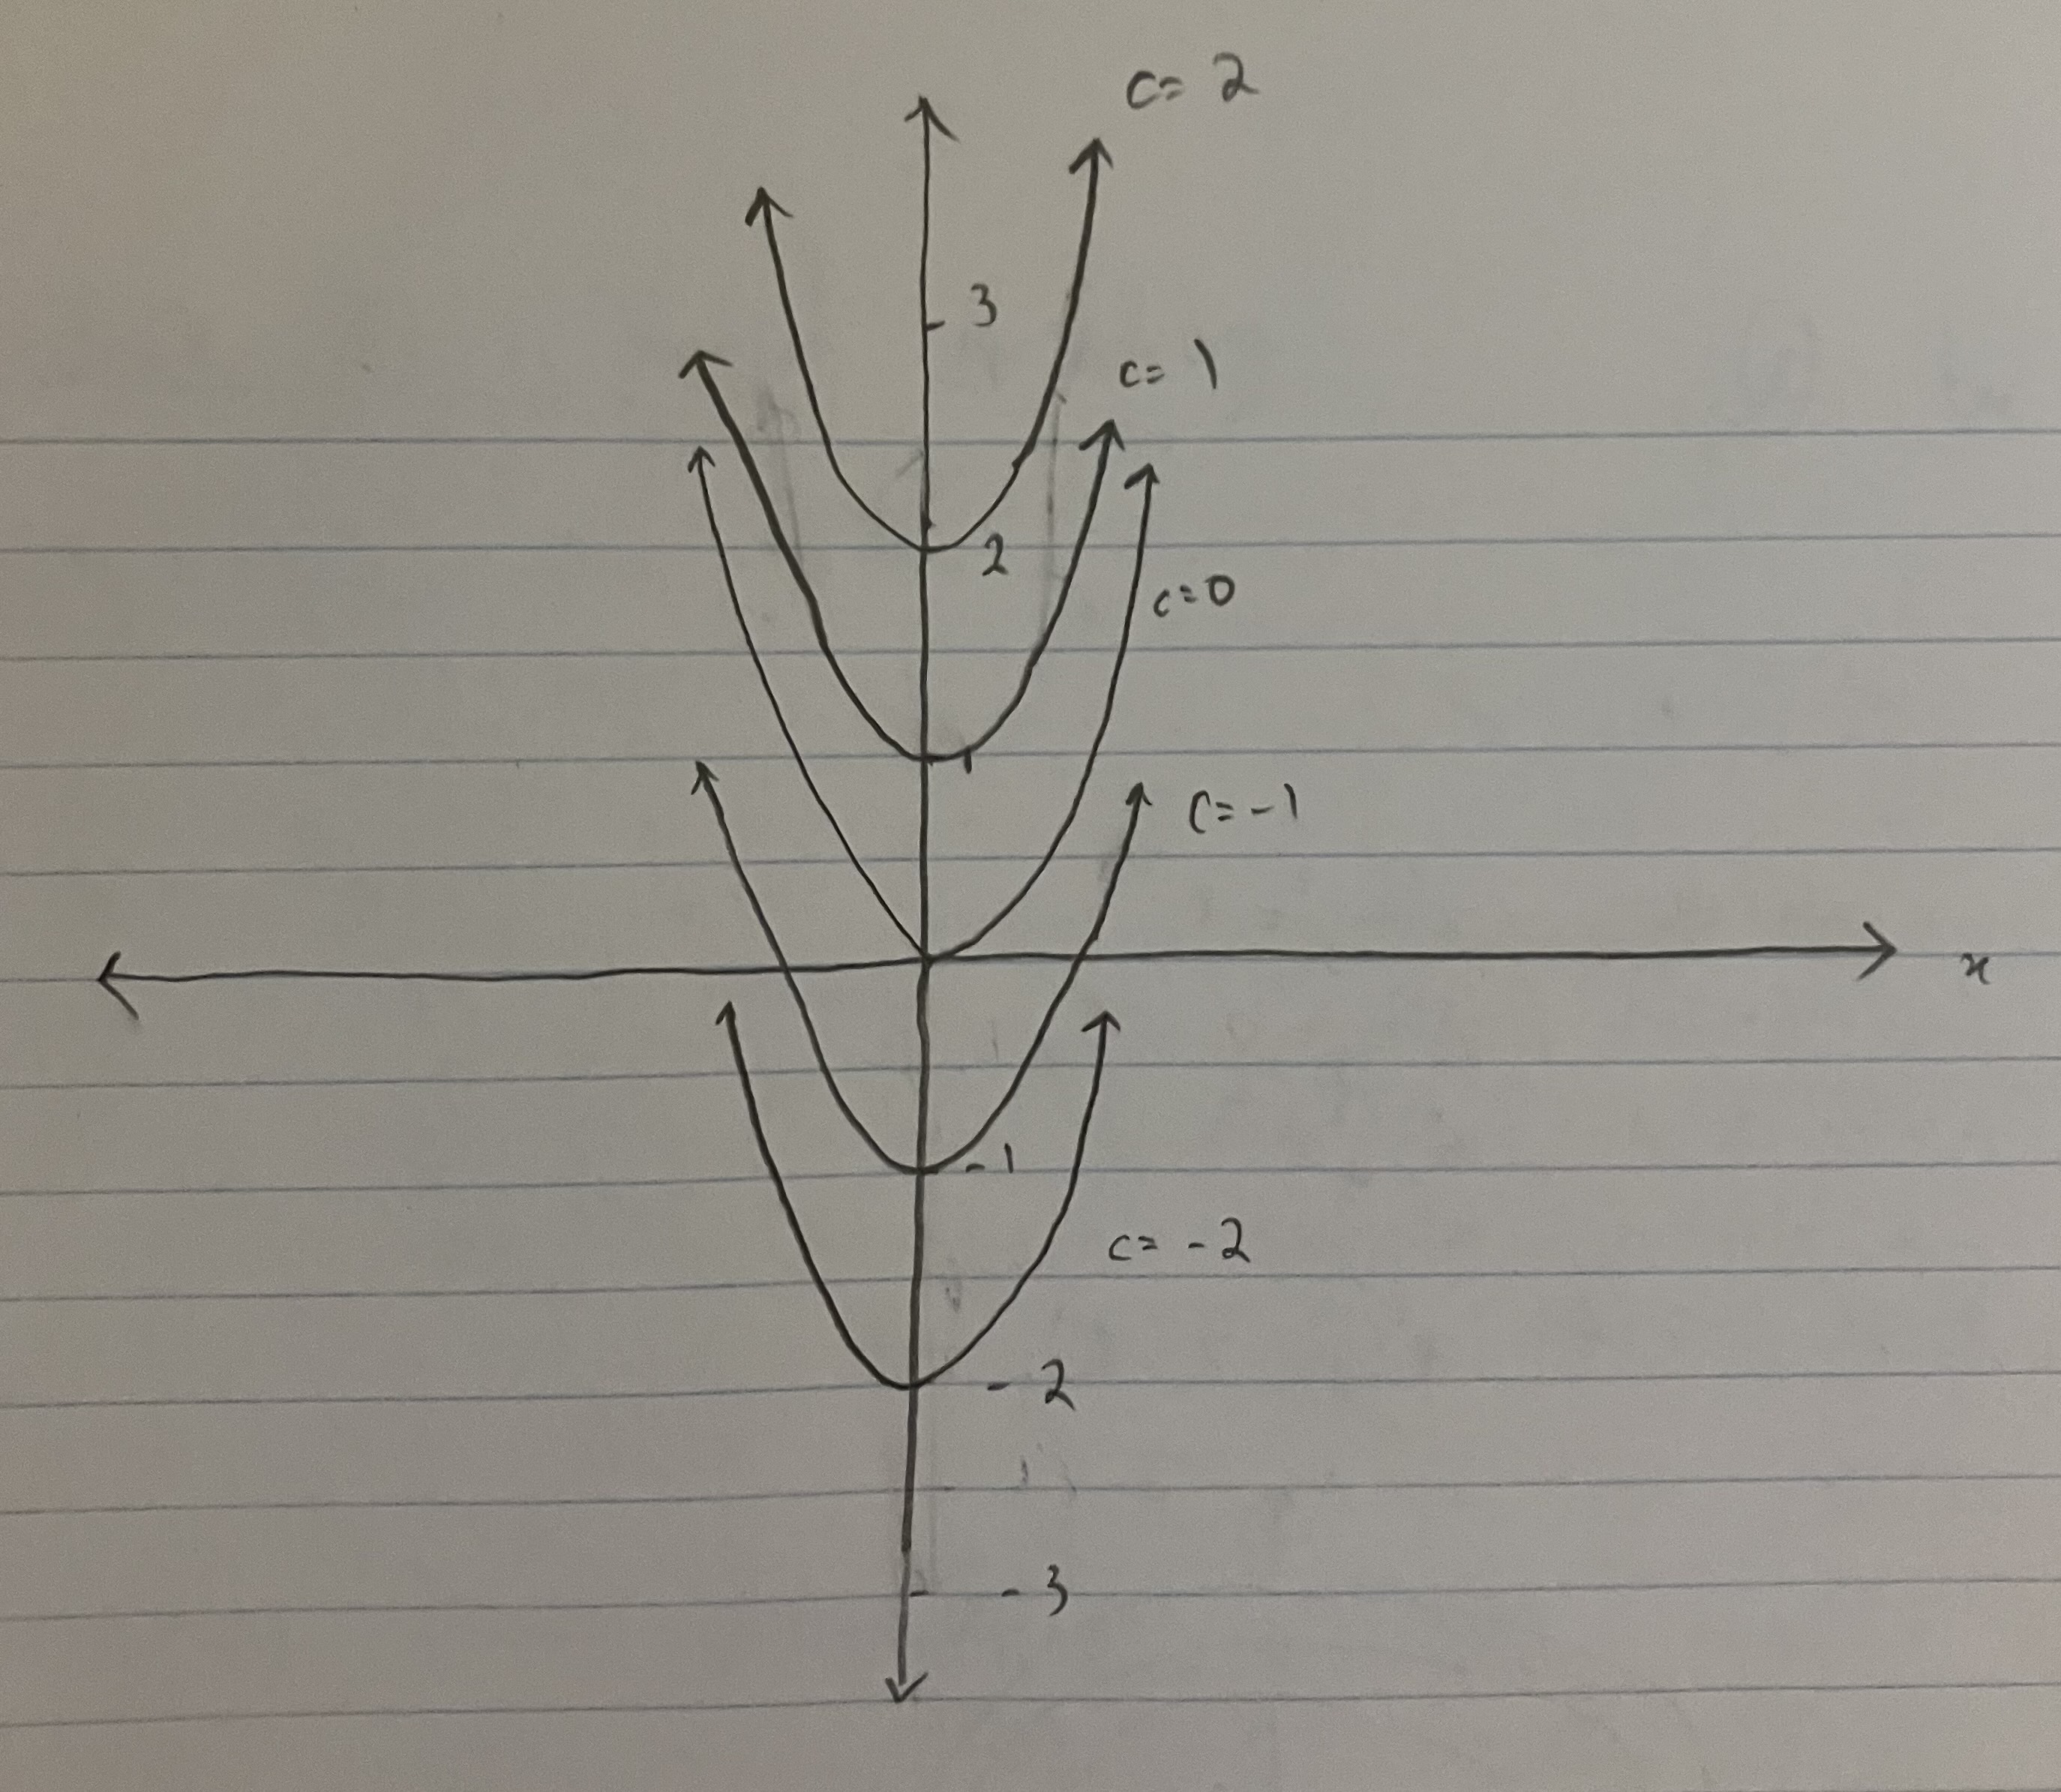 c= 2
3
c= 1
2
c=0
1
c= -1
x
-1
c= -2
-2
-3